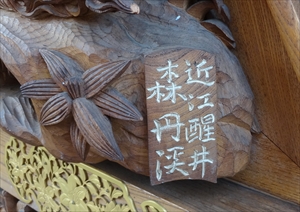 近江醒井
森丹渓